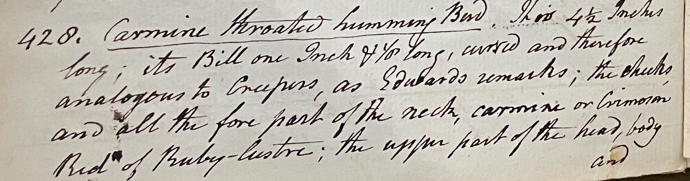 428. Carmine throated humming Bird. It is 4½ Inches
long; its Bill one Inch & ⅛ long, curved and therefore
analogous to Creepers, as Edwards remarks; the cheeks,
and all the fore part of the neck, carmine or Crimson
Red of Ruby-lustre; the upper part of the head, body
and